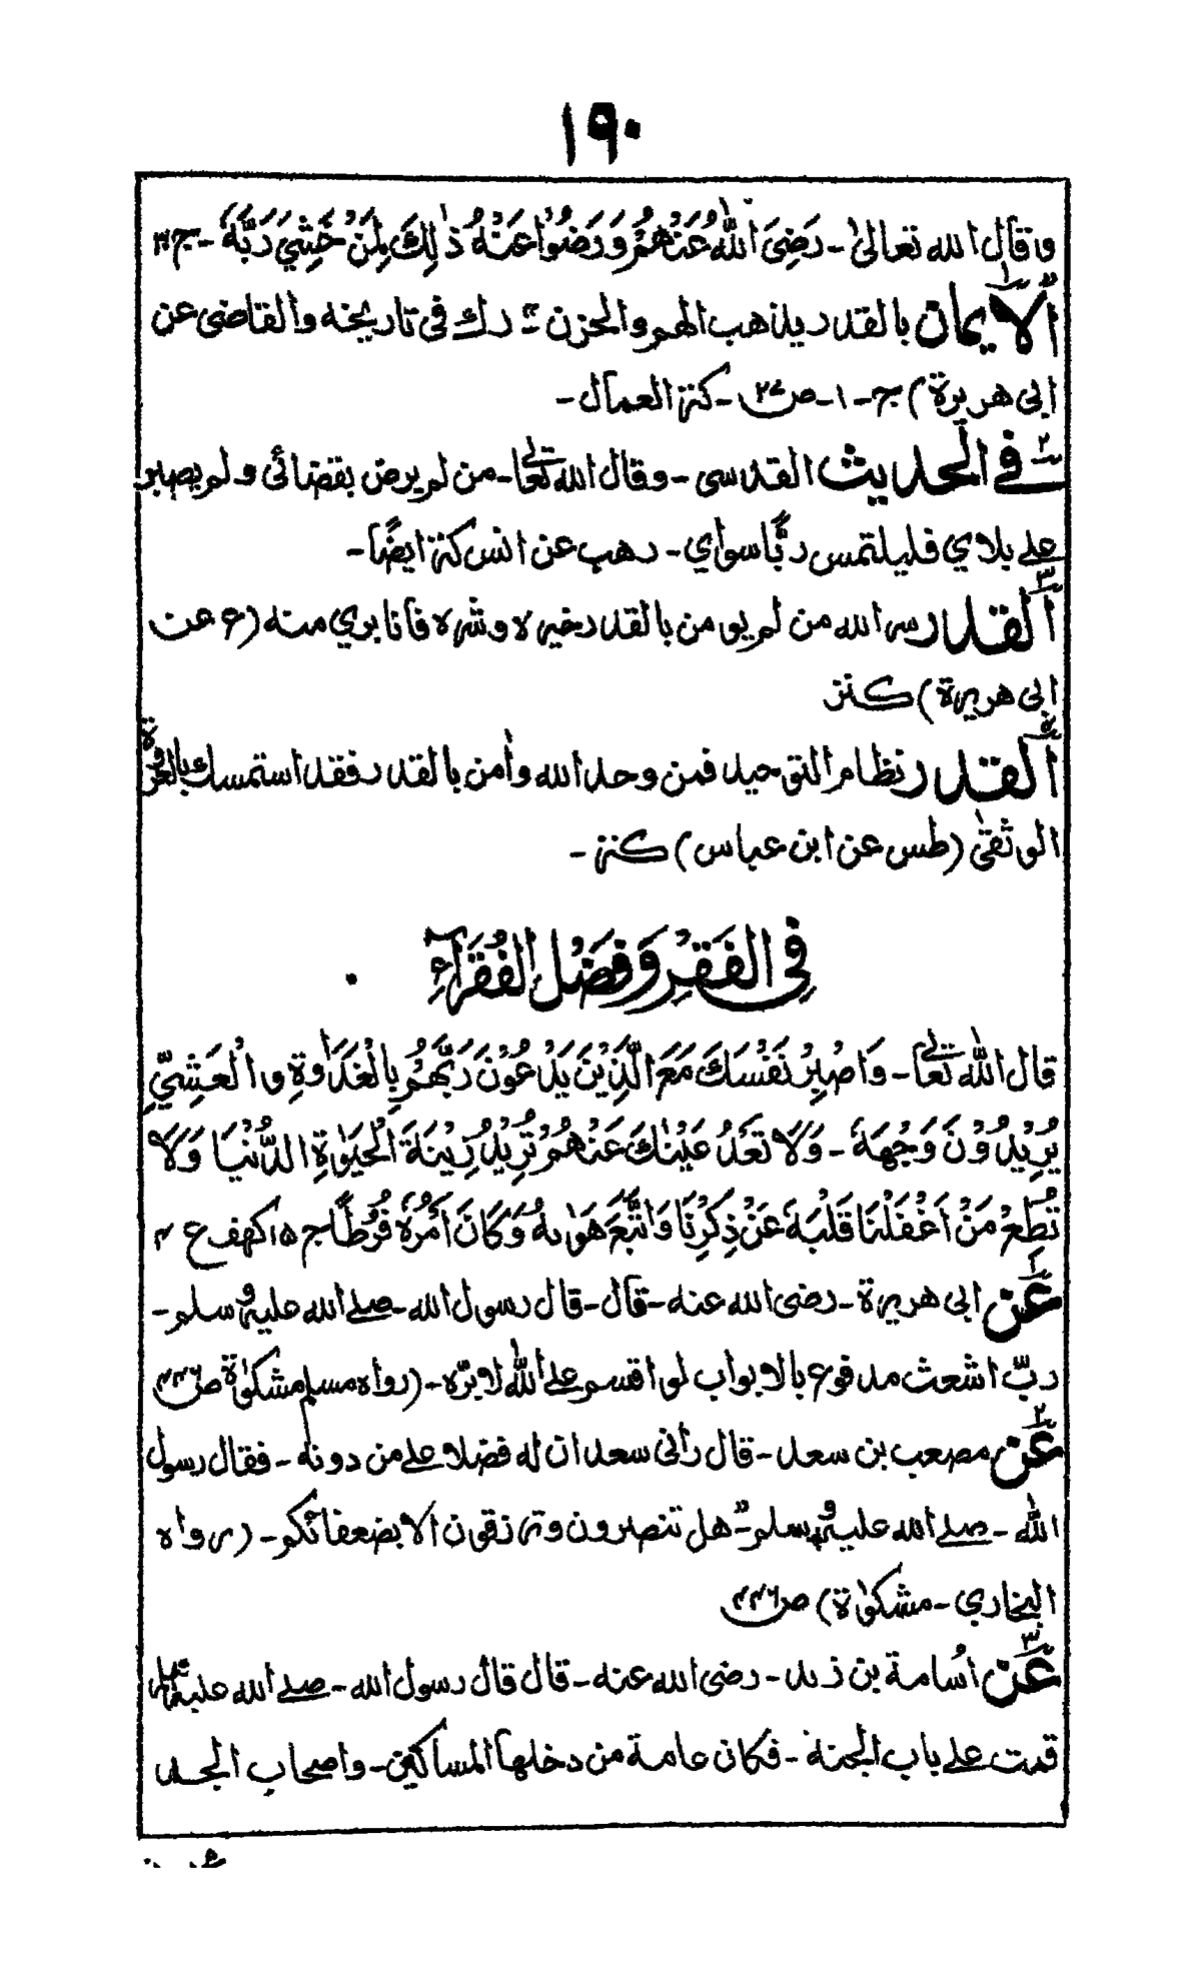 ١٩٠
وقال الله تعالىٰ - رَضِيَ اللّٰهُ عَنْهُمْ وَرَضُوْا عَنْهُ ذٰلِكَ لِمَنْ خَشِيَ رَبَّهٗ - ج٣٠
١ الايمان بالقدر يذهب الهم والحزن - رك فى تاريخه والقاضى عن
ابى هريرة) ج - ١ - ص ٢٧ - كنز العمال -
٢ فى الحديث القدسى - وقال الله تعالىٰ - من لم يرض بقضائى ولم يصبر
علے بلاءي فليلتمس ربًّا سواي - رهب عن انس كنز ايضًا -
٣ القدر سر الله من لم يومن بالقدر خيره وشره فانا بري منه (ع عن
ابى هريرة) كنز
القدر نظام التوحيد فمن وحد الله وامن بالقدر فقد استمسك بالعروة
الوثقىٰ (طس عن ابن عباس) كنز -
فِى الفَقْرِ وَفَضْلِ الفُقَرَآءِ
قال اللّٰه تعالىٰ - وَاصْبِرْ نَفْسَكَ مَعَ الَّذِيْنَ يَدْعُوْنَ رَبَّهُمْ بِالْغَدَاوةِ والْعَشِيِّ
يُرِيْدُوْنَ وَجْهَهٗ - وَلَا تَعْدُ عَيْنٰكَ عَنْهُمْ تُرِيْدُ زِيْنَةَ الْحَيٰوةِ الدُّنْيَا وَلَا
تُطِعْ مَنْ اَغْفَلْنَا قَلْبَهٗ عَنْ ذِكْرِنَا وَاتَّبَعَ هَوٰىهُ وَكَانَ اَمْرُهٗ فُرُطًا ج ١٥ كهف ع ٤
١ عن ابى هريرة - رضى الله عنه - قال - قال رسول الله - صلے الله عليه وسلم -
ربّ اشعث مدفوع بالابواب لو اقسم علے اللّٰه لابرّه - (رواه مسلم مشكوٰة ص ٤٤٦
٢ عن مصعب بن سعد - قال رأى سعد ان له فضلا علے من دونه - فقال رسول
اللّٰه - صلے الله عليه وسلم - هل تنصرون وترزقون الا بضعفائكم - (رواه
البخاري - مشكوٰة) ص ٤٤٦
٣ عن اُسامة بن زيد - رضى الله عنه - قال قال رسول الله - صلے الله عليه وسلم
قمت علے باب الجنة - فكان عامة من دخلها المساكين - واصحاب الجد